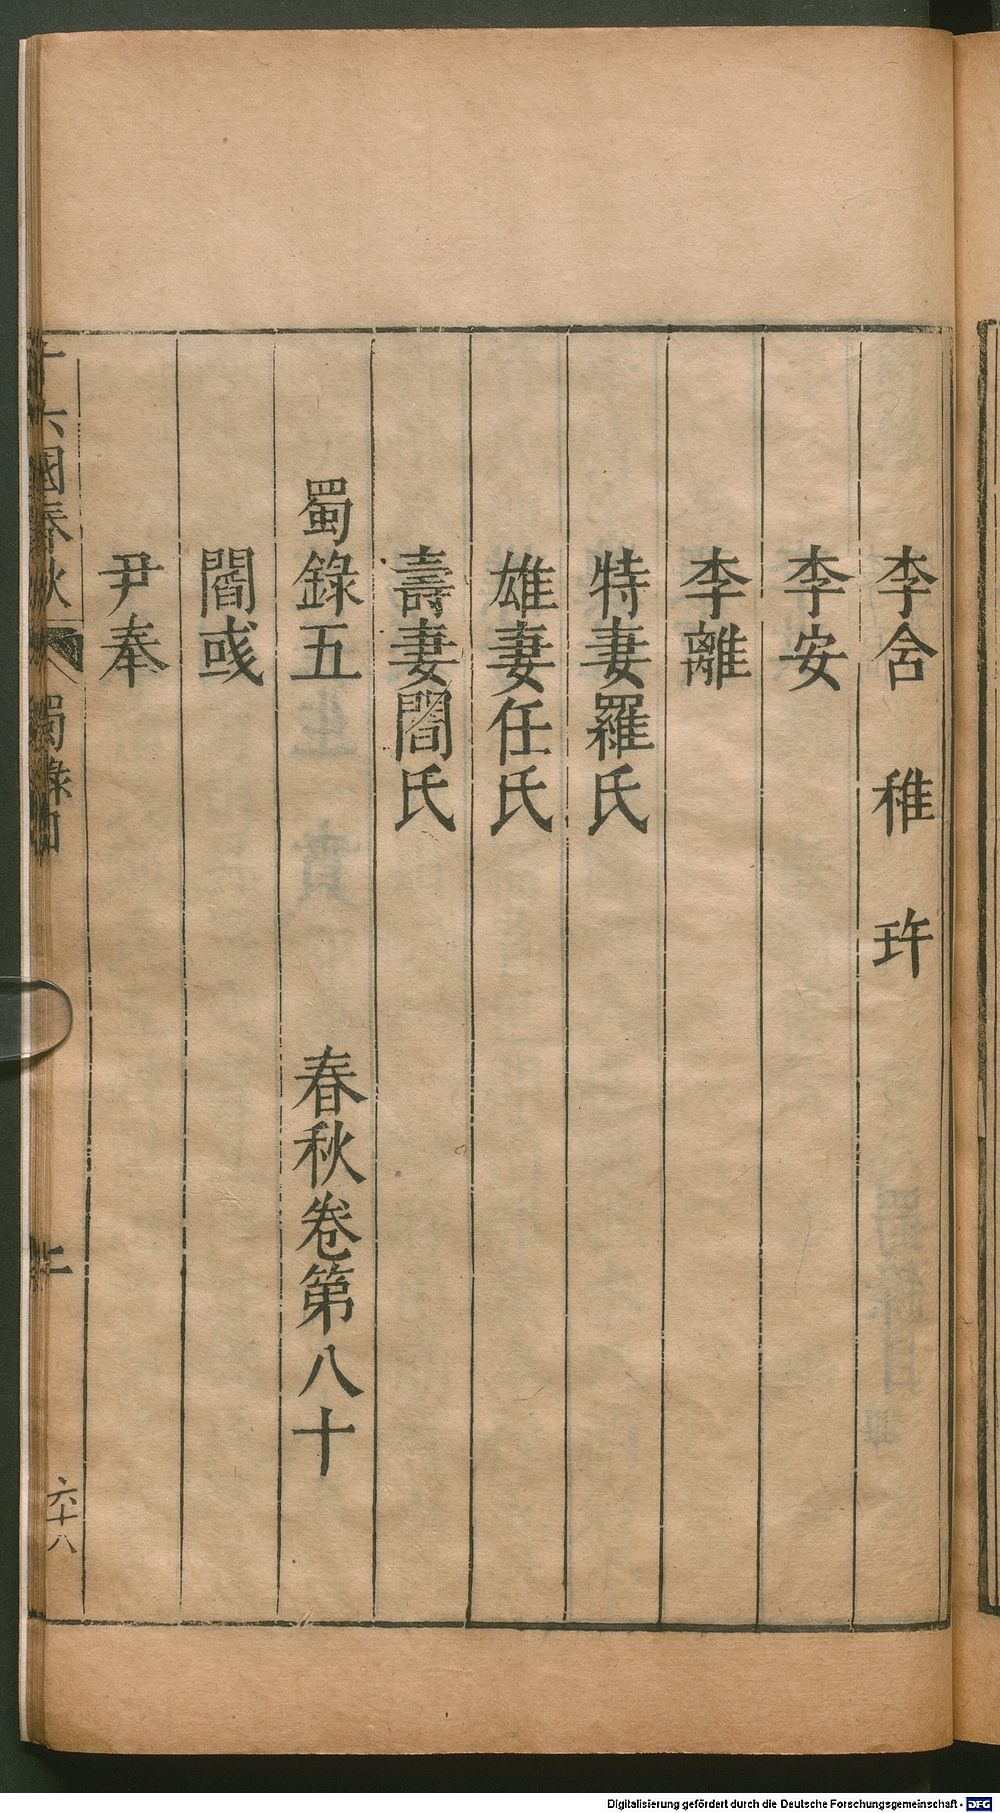 李含　稚　玝
李安
李離
特妻羅氏
雄妻任氏
壽妻閻氏
蜀錄五　春秋卷第八十
閻彧
尹奉
十六國春秋　蜀錄目　二　六十八
Digitalisierung gefördert durch die Deutsche Forschungsgemeinschaft - DFG